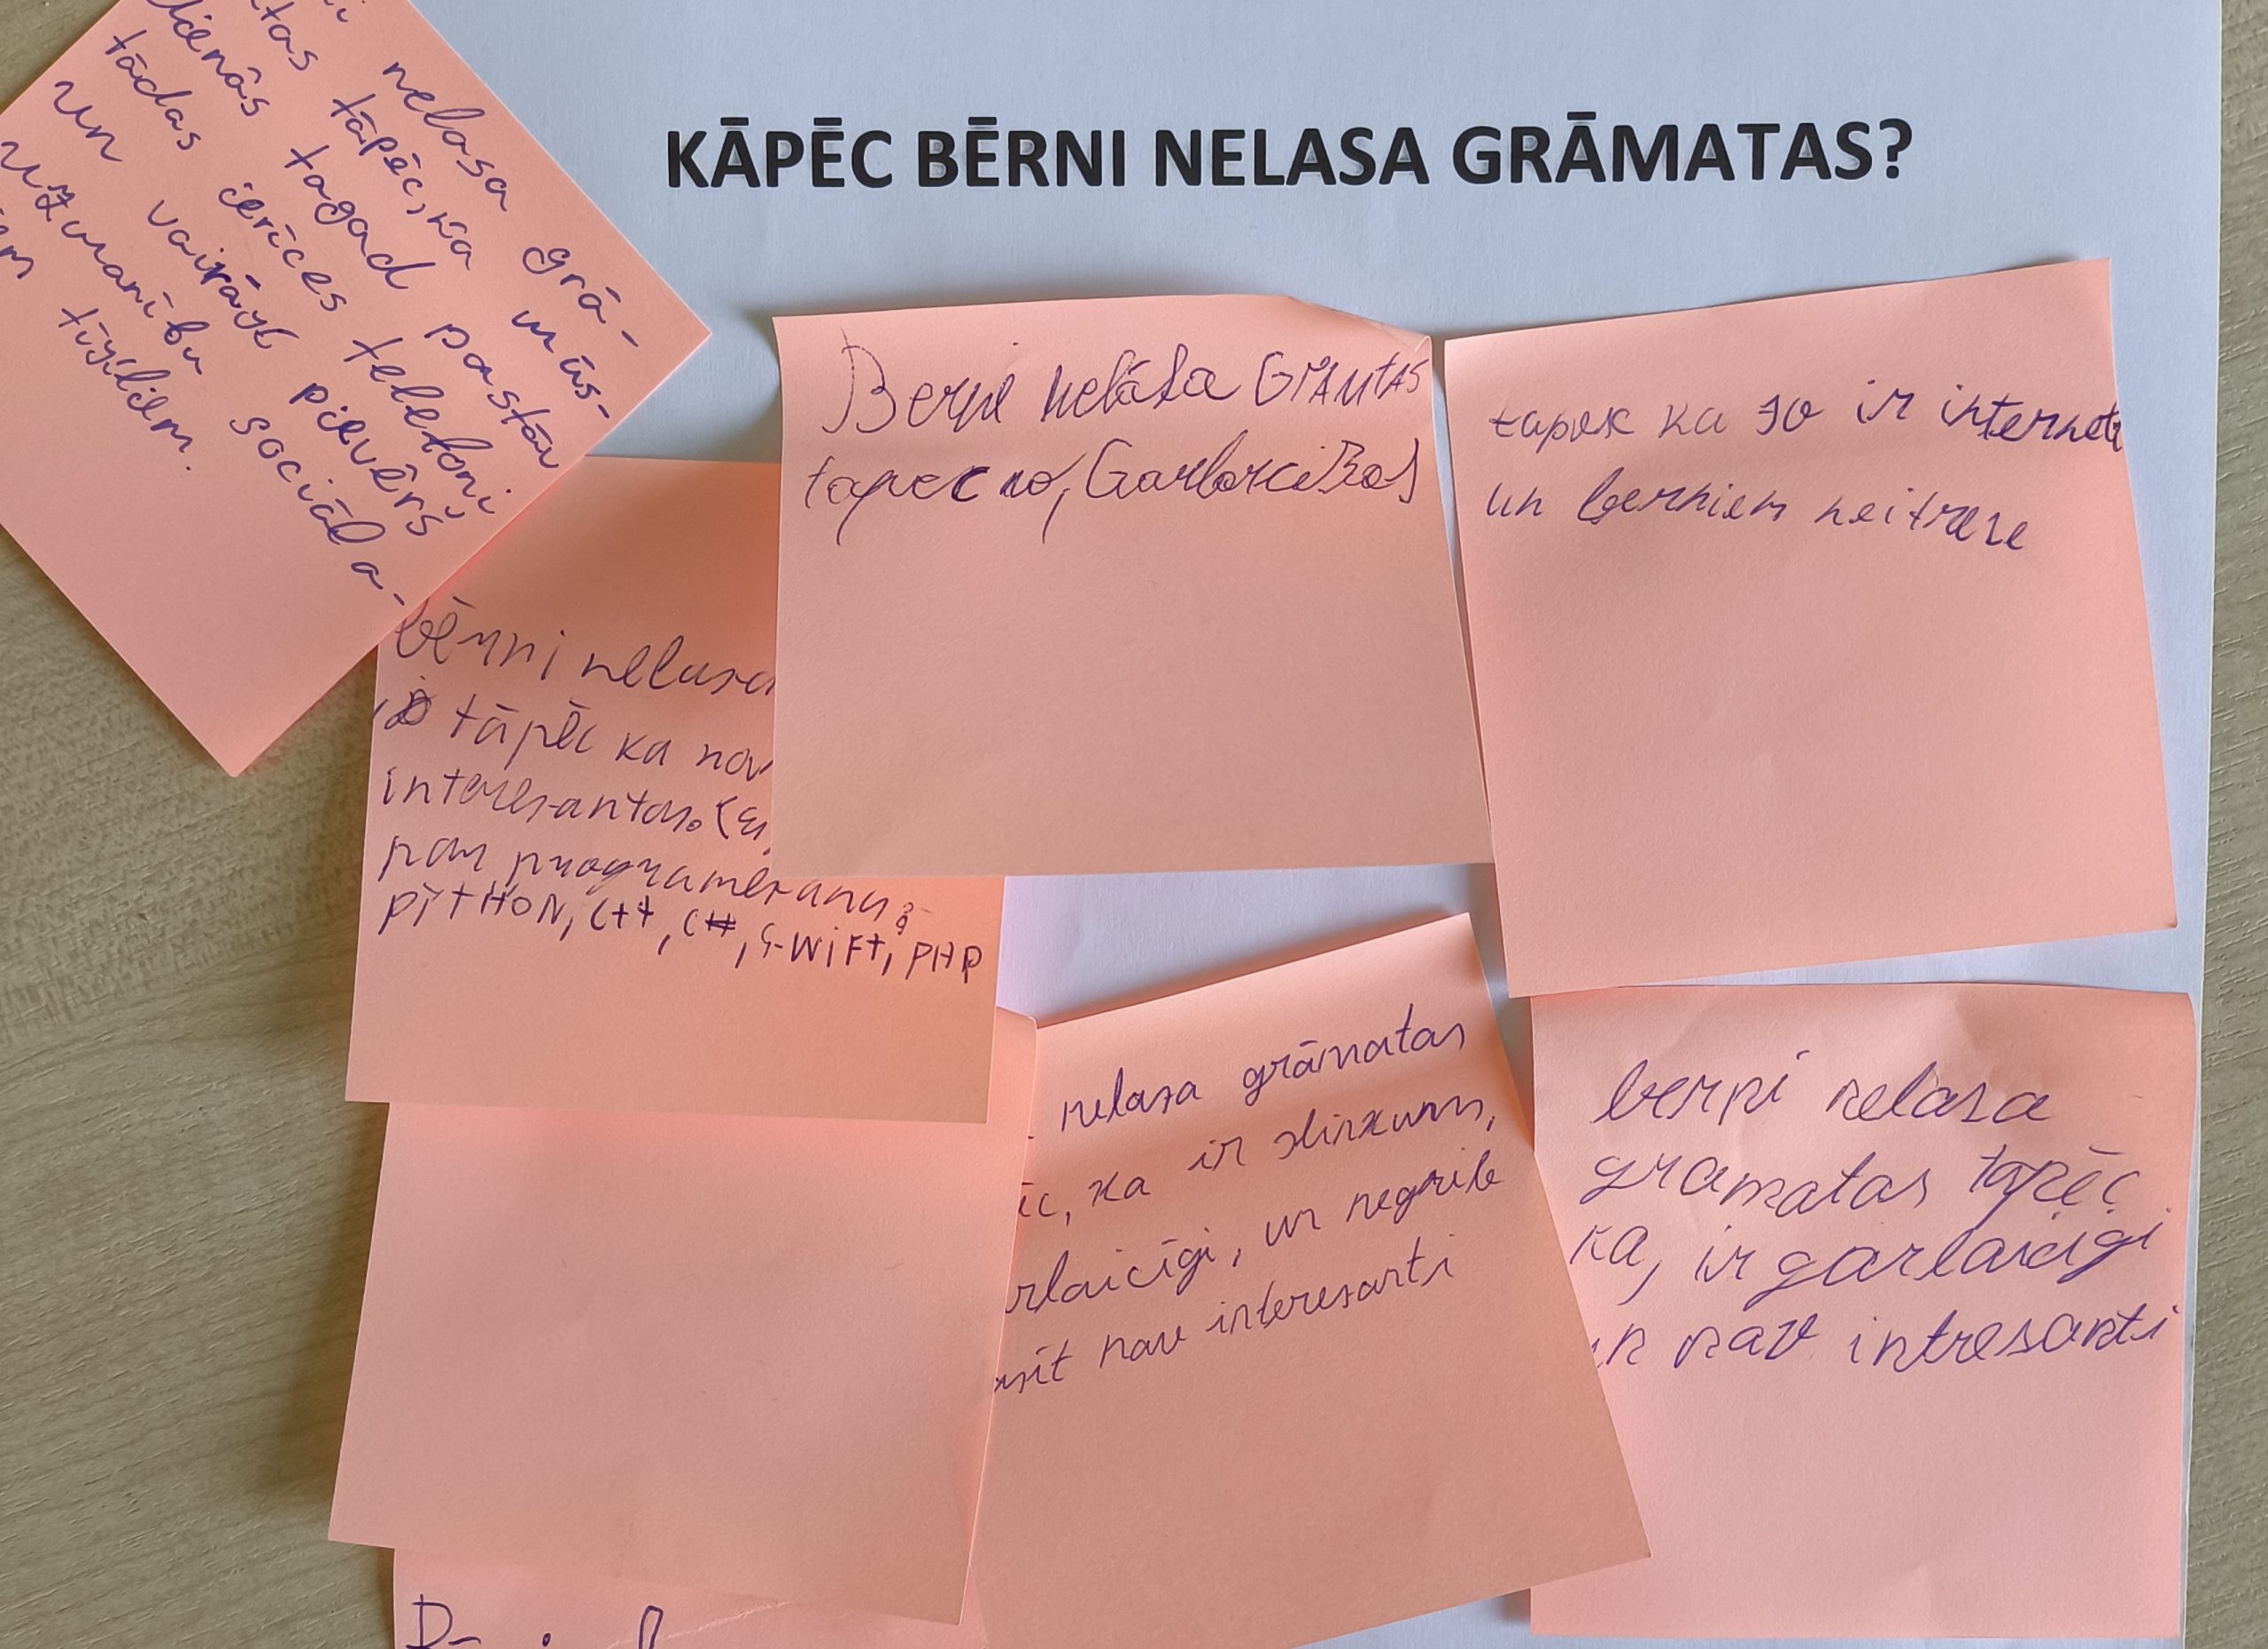 KĀPĒC BĒRNI NELASA GRĀMATAS?
nelasa grā-
tas tāpēc, ka mūs-
dienās tagad pastāv
tādas ierīces telefoni
un vairāk pievērš
uzmanību sociāla-
em tīkliem.
Berni nelāsa
tapec no,
tapec ka jo ir internets
un berniem neitrese
bērni nelasa
tāpēc ka nav
interesantas.
par programēranu:
PYTHON, C++, C#, SWIFT, PHP
nelasa grāmatas
ēc, ka ir slinkums,
rlaicīgi, un negrib
asīt nav interesanti
berni nelasa
gramatas tapēc
ka, ir garlaicigi
un nav intresanti